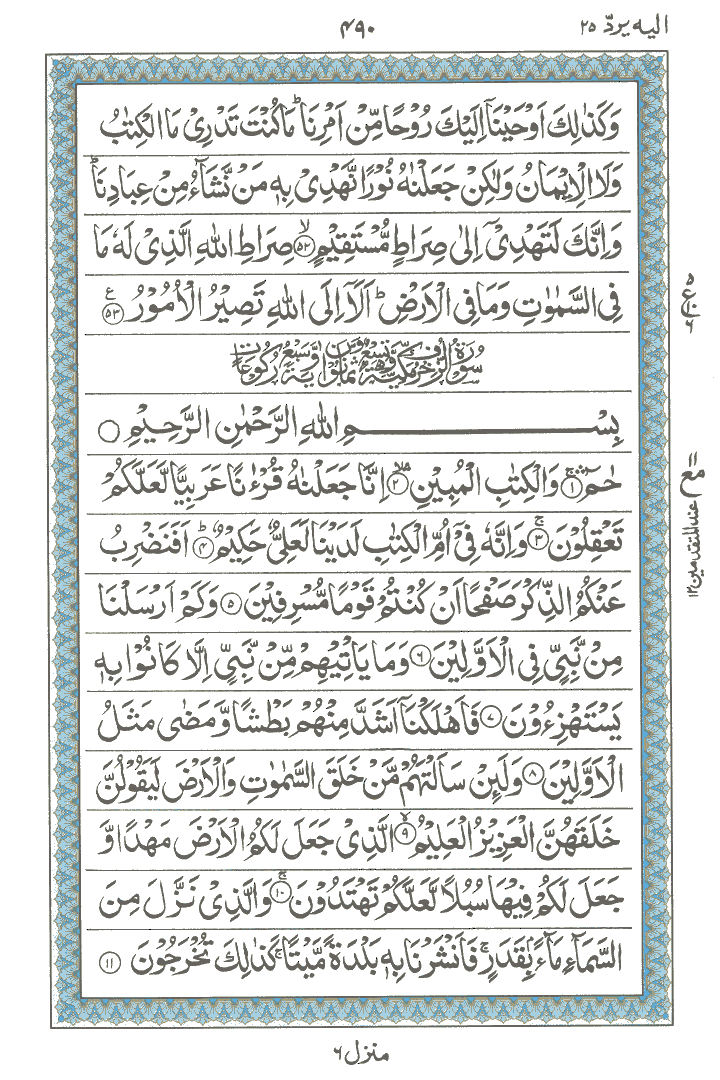 اليه يردّ ٢٥
٤٩٠
وَكَذٰلِكَ اَوْحَيْنَاۤ اِلَيْكَ رُوْحًا مِّنْ اَمْرِنَا ؕ مَا كُنْتَ تَدْرِىْ مَا الْكِتٰبُ
وَلَا الْاِيْمَانُ وَلٰكِنْ جَعَلْنٰهُ نُوْرًا نَّهْدِىْ بِهٖ مَنْ نَّشَآءُ مِنْ عِبَادِنَا ؕ
وَاِنَّكَ لَتَهْدِىْۤ اِلٰى صِرَاطٍ مُّسْتَقِيْمٍ ۙ‏﴿۵۲﴾ صِرَاطِ اللّٰهِ الَّذِىْ لَهٗ مَا
فِى السَّمٰوٰتِ وَمَا فِى الْاَرْضِ ؕ اَلَاۤ اِلَى اللّٰهِ تَصِيْرُ الْاُمُوْرُ ﴿۵۳﴾ ع
سُوْرَةُ الزُّخْرُفِ مَكِّيَّةٌ وَّهِىَ تِسْعٌ وَّثَمَانُوْنَ اٰيَةً وَّسَبْعُ رُكُوْعَاتٍ
بِسْمِ اللّٰهِ الرَّحْمٰنِ الرَّحِيْمِ
حٰمٓ ۚ‏﴿۱﴾ وَالْكِتٰبِ الْمُبِيْنِ ۙ‏﴿۲﴾ اِنَّا جَعَلْنٰهُ قُرْءٰنًا عَرَبِيًّا لَّعَلَّكُمْ
تَعْقِلُوْنَ ۚ‏﴿۳﴾ وَاِنَّهٗ فِىْۤ اُمِّ الْكِتٰبِ لَدَيْنَا لَعَلِىٌّ حَكِيْمٌ ؕ‏﴿۴﴾ اَفَنَضْرِبُ
عَنْكُمُ الذِّكْرَ صَفْحًا اَنْ كُنْتُمْ قَوْمًا مُّسْرِفِيْنَ ﴿۵﴾ وَكَمْ اَرْسَلْنَا
مِنْ نَّبِىٍّ فِى الْاَوَّلِيْنَ ﴿۶﴾ وَمَا يَاْتِيْهِمْ مِّنْ نَّبِىٍّ اِلَّا كَانُوْا بِهٖ
يَسْتَهْزِءُوْنَ ﴿۷﴾ فَاَهْلَكْنَاۤ اَشَدَّ مِنْهُمْ بَطْشًا وَّمَضٰى مَثَلُ
الْاَوَّلِيْنَ ﴿۸﴾ وَلَئِنْ سَاَلْتَهُمْ مَّنْ خَلَقَ السَّمٰوٰتِ وَالْاَرْضَ لَيَقُوْلُنَّ
خَلَقَهُنَّ الْعَزِيْزُ الْعَلِيْمُ ۙ‏﴿۹﴾ الَّذِىْ جَعَلَ لَكُمُ الْاَرْضَ مَهْدًا وَّ
جَعَلَ لَكُمْ فِيْهَا سُبُلًا لَّعَلَّكُمْ تَهْتَدُوْنَ ۚ‏﴿۱۰﴾ وَالَّذِىْ نَزَّلَ مِنَ
السَّمَآءِ مَآءًۢ بِقَدَرٍ ۚ فَاَنْشَرْنَا بِهٖ بَلْدَةً مَّيْتًا ۚ كَذٰلِكَ تُخْرَجُوْنَ ﴿۱۱﴾
۵
ع
۶
۱۱
مع
عند المتقدمين ۱۲
منزل ۶